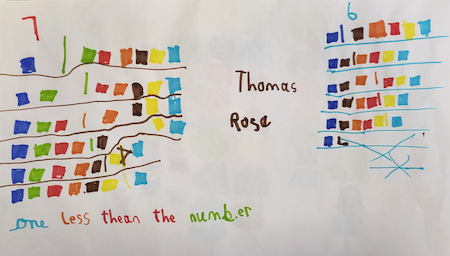 7
6
Thomas
Rose
one less thean the number